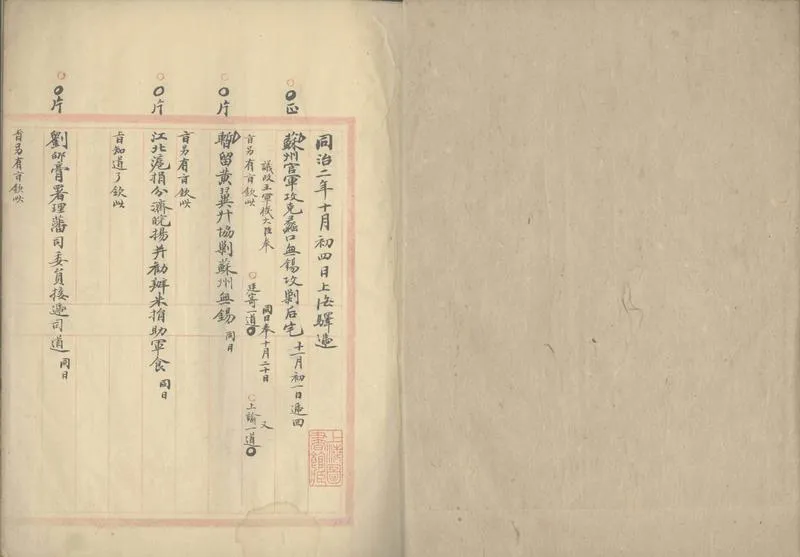 同治二年十月初四日上海驛遞
正
蘇州官軍攻克蠡口無錫攻剿后宅 十一月初一日遞回
議政王軍機大臣奉
旨另有旨欽此
同日奉十月二十日
廷寄一道
又
上諭一道
片
暫留黃翼升協剿蘇州無錫 同日
旨另有旨欽此
片
江北滬捐分濟皖揚并勸辦米捐助軍食 同日
旨知道了欽此
片
劉郇膏署理藩司委員接遞司道 同日
旨另有旨欽此
上海圖書館藏